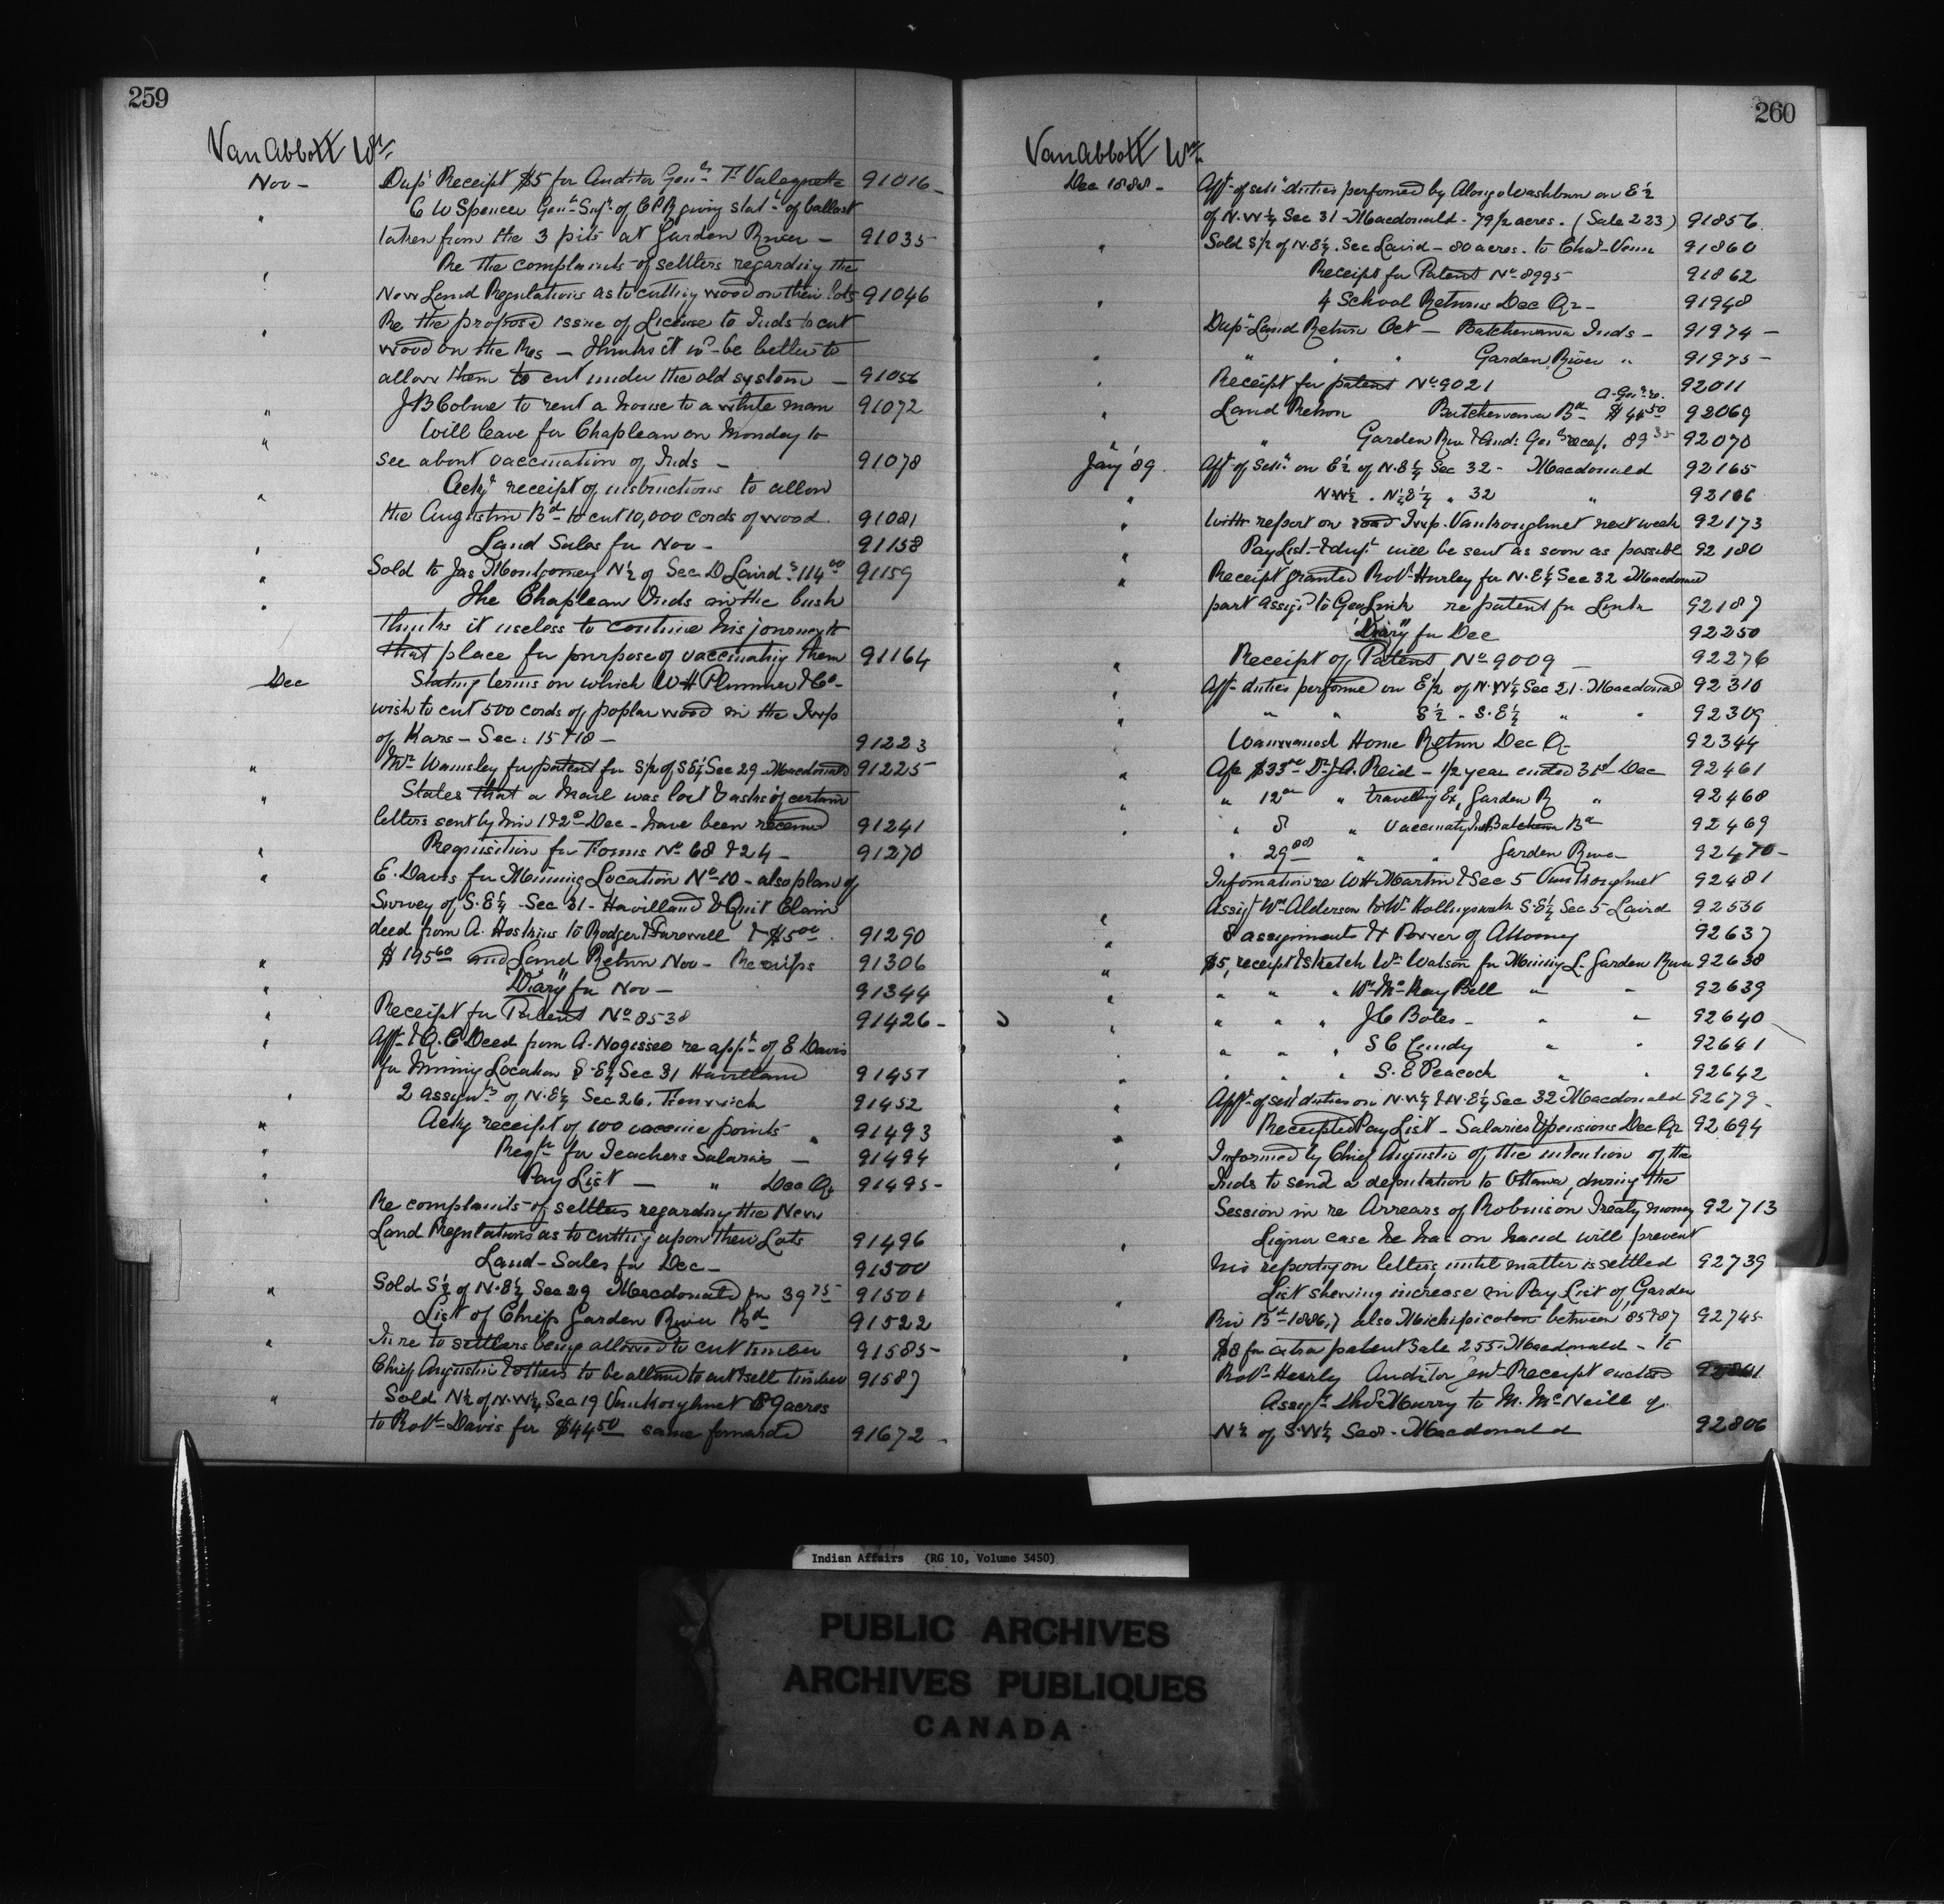 259
Van Abbott Wm
Nov - Dup. Receipt $5 for Auditor Genl. T. Valequette 91016 -
C W Spencer Genl. Supt. of C P R giving stat. of ballast
" taken from the 3 pits at Garden River - 91035
Re the complaints of settlers regarding the
" New Land Regulations as to cutting wood on their lots 91046
Re the proposed issue of License to Inds to cut
" wood on the Res - Thinks it wd. be better to
allow them to cut under the old system - 91056
" J B Colme to rent a house to a white man 91072
Will leave for Chapleau on Monday to
" see about vaccination of Inds - 91078
Ackg. receipt of instructions to allow
" the Augustin Bd. to cut 10,000 cords of wood 91081
" Land Sales for Nov - 91158
" Sold to Jas Montgomery N½ of Sec D Laird $114.00 91159
The Chapleau Inds in the bush
" thinks it useless to continue his journey to
that place for purpose of vaccinating them 91164
Dec Stating terms on which W H Plummer & Co.
wish to cut 500 cords of poplar wood in the Twp
of Kars - Sec: 15 & 18 - 91223
" Mr. Wamsley for patent for S/2 of S E¼ Sec 29 Macdonald 91225
States that a mail was lost & asks if certain
" letters sent by him 1 & 2d Dec - have been received 91241
" Requisition for Forms No. 68 & 24 - 91270
" E. Davis for Mining Location No. 10 - also plan of
Survey of S.E¼ Sec 31 - Havilland & Quit Claim
deed from A. Hoskins to Rodger & Farewell & $5.00 91290
" $195.60 and Land Return Nov - Receipts 91306
" "Diary" for Nov - 91344
" Receipt for Patent No. 8538 91426 -
" Afft. & Q. C Deed from A. Nogisseo re appt. of E Davis
for Mining Location S.E¼ Sec 31 Havilland 91451
" 2 assignts. of N.E¼ Sec 26. Fenwick 91452
" Ackg receipt of 100 vaccine points 91493
" Regn. for Teachers Salaries - 91494
" Pay List - " Dec Qr 91495 -
" Re complaints of settlers regarding the New
Land Regulations as to cutting upon their Lots 91496
Land - Sales for Dec - 91500
" Sold S½ of N.E¼ Sec 29 Macdonald for 39.75 91501
List of Chiefs Garden River Bd. 91522
" In re to settlers being allowed to cut timber 91585 -
Chief Augustin & others to be allowed to cut & sell timber 91587
" Sold N½ of N.W¼ Sec 19 Vankoughnet 89 acres
to Robt. Davis for $44.50 same forwarded 91672 -
260
Van Abbott Wm
Dec 1888 - Afft. of settl. duties performed by Alonzo Washburn on E½
of N.W¼ Sec 31 - Macdonald - 79½ acres. (Sale 223) 91856
" Sold S/2 of N.E¼. Sec Laird - 80 acres. to Chas. Venn 91860
Receipt for Patent No. 8995 91862
" 4 School Returns Dec Qr - 91948
Dup. Land Return Oct - Batchewana Inds - 91974 -
" " " " Garden River " 91975 -
" Receipt for patent No. 9021 92011
" Land Return Batchewana Bd. $44.50 92069
" Garden Riv & Aud: Genl's recep. 89.35 92070
Jany '89. Afft. of Settl. on E½ of N.E¼ Sec 32 - Macdonald 92165
" N.W½ . N.E¼ " 32 " 92166
" With report on road Twp. Vankoughnet next week 92173
" Pay List & dupl. will be sent as soon as possible 92180
" Receipt granted Robt. Hurley for N.E¼ Sec 32 Macdonald
part assigd. to Geo Link re patent for Link 92187
"Diary" for Dec 92250
" Receipt of Patent No. 9009 - 92276
" Afft. duties performed on E½ of N.W¼ Sec 21. Macdonald 92310
" " " S½ . S.E¼ " " 92309
" Wawanosh Home Return Dec Qr 92344
" Afc $33.00 Dr. J A. Reid - ½ year ended 31st Dec 92461
" " 12.00 " travelling Ex, Garden R " 92468
" " 8 " Vaccinating Inds Batchewana Bd 92469
" 29.00 " " Garden River 92470 -
Information re W H Martin & Sec 5 Vankoughnet 92481
" Assigt. Wm. Alderson to Wm. Hollingsworth S.E¼ Sec 5 Laird 92536
" 8 assignments & Power of Attorney 92637
" $5, receipt & sketch Wm. Watson for Mining L. Garden River 92638
" " " " Wm. McKay Bell " " 92639
" " " " J C Boles - " " 92640
" " " " S C Cundy " " 92641
" " " " S. E Peacock " " 92642
" Afft. of settl. duties on N.W¼ & N.E¼ Sec 32 Macdonald 92679 -
" Receipted Pay List - Salaries & pensions Dec Qr 92694
" Informed by Chief Augustin of the intention of the
Inds to send a deputation to Ottawa, during the
Session in re Arrears of Robinson Treaty money 92713
" Liquor case he has on hand will prevent
his reporting on letters until matter is settled 92739
" List shewing increase in Pay List of Garden
Riv Bd. 1886,7 also Michipicoten between 85 & 87 92745
" $8 for extra patent Sale 255 - Macdonald - to
Robt. Hurley Auditor Genl. Receipt enclosed
Assigt. McMurry to M. McNeill of
N½ of S.W¼ Sec 8. Macdonald 92806
Indian Affairs (RG 10, Volume 3450)
PUBLIC ARCHIVES
ARCHIVES PUBLIQUES
CANADA